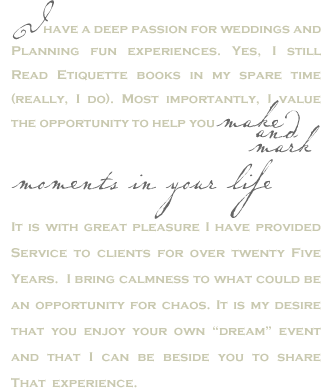 I have a deep passion for weddings and
Planning fun experiences. Yes, I still
Read Etiquette books in my spare time
(really, I do). Most importantly, I value
the opportunity to help you make
and
mark
moments in your life
It is with great pleasure I have provided
Service to clients for over twenty Five
Years. I bring calmness to what could be
an opportunity for chaos. It is my desire
that you enjoy your own “dream” event
and that I can be beside you to share
That experience.